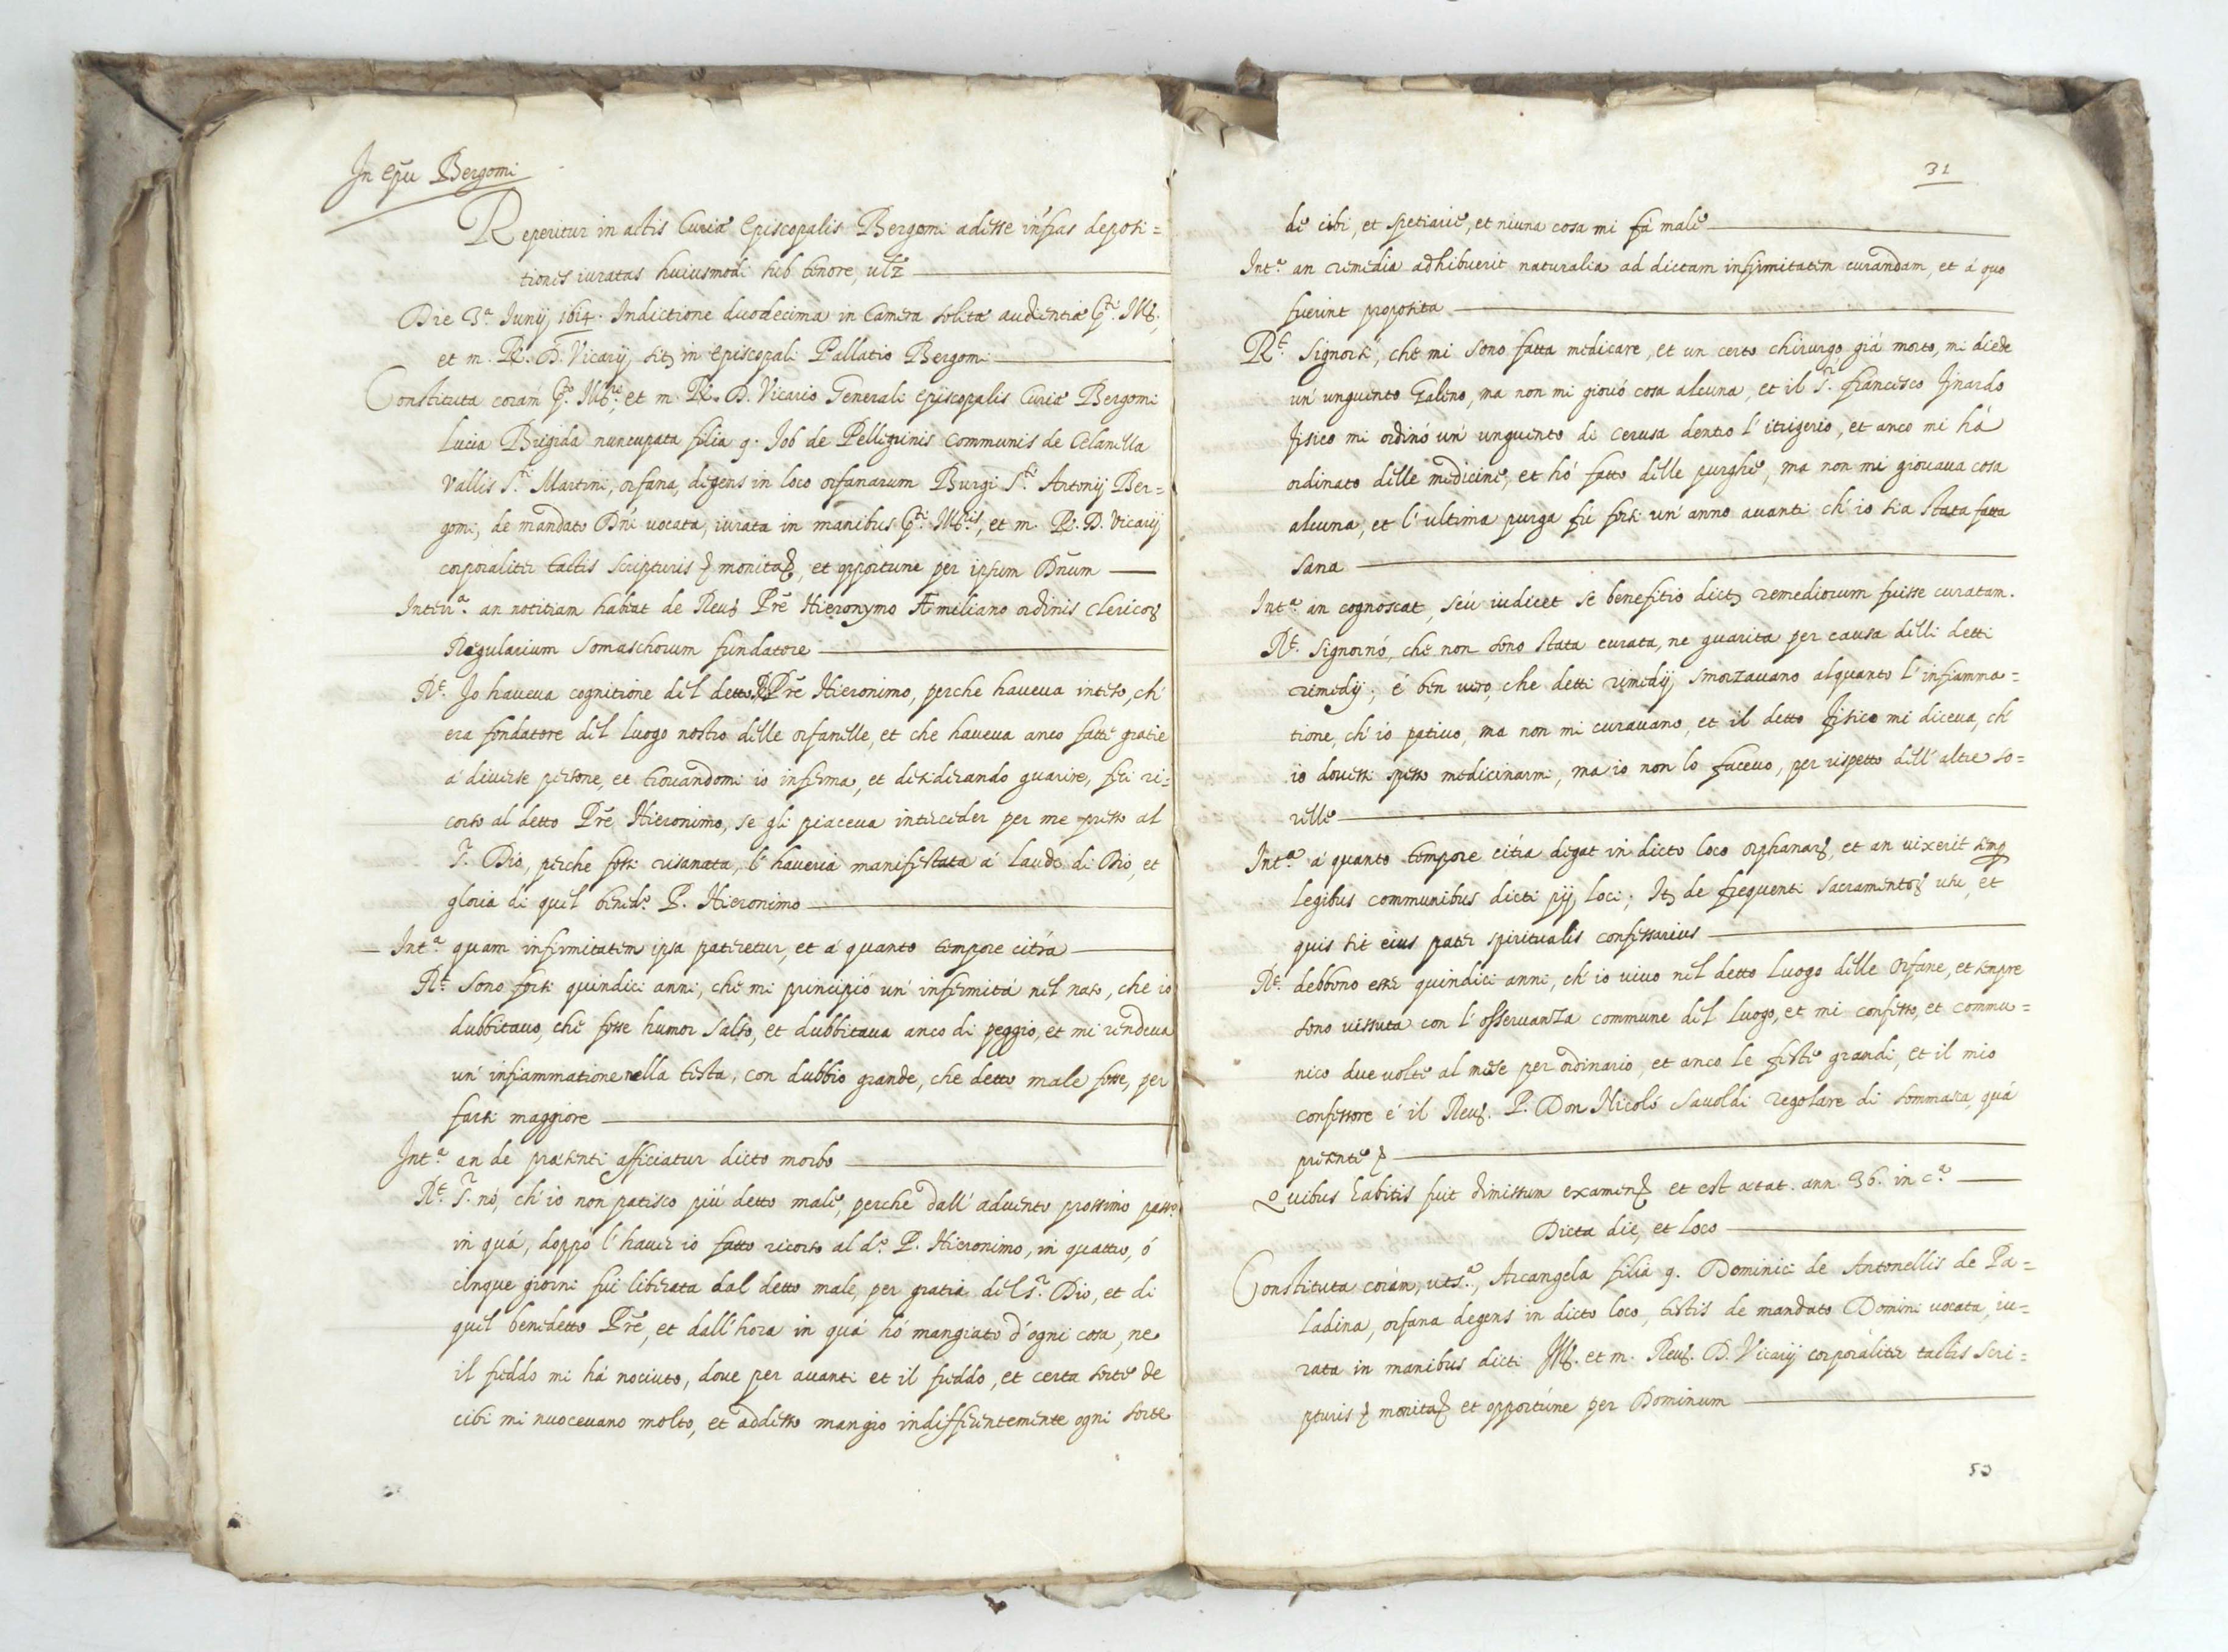 In Epũ Bergomi
Reperitur in actis Curiæ Episcopalis Bergomi adesse infras deposi=
tiones iuratas huiusmodi sub tenore, ulz
Die 3.ª Iunij 1614. Indictione duodecima in Camera solitæ audientiæ
et m. R. D. Vicarij, sitę in Episcopali Pallatio Bergomi
Constituta coram et m. R. D. Vicario Generali Episcopalis Curiæ Bergomi
Lucia Brigida nuncupata filia q. Iob de Pelligrinis Communis de Celanella
Vallis S.ti Martini, orfana, degens in loco orfanarum Burgi S.ti Antonij Ber=
gomi, de mandato Dñi uocata, iurata in manibus et m. R. D. Vicarij
corporaliter tactis scripturis monita, et opportune per ipsum Dñum
Inter.ª an notitiam habeat de Reu. Prẽ Hieronymo Æmiliano ordinis Clericor
Regularium Somaschorum fundatore
R.t Io haueua cognitione del detto Prẽ Hieronimo, perche haueua inteso, ch'
era fondatore del luogo nostro delle orfanelle, et che haueua anco fatte gratie
à diuerse persone, et trouandomi io inferma, et desiderando guarire, feci ri=
corso al detto Prẽ Hieronimo, se gli piaceua interceder per me presso al
S.r Dio, perche fossi risanata, l'haueria manifestata à laude di Dio, et
gloria di quel bened.º P. Hieronimo
Int.ª quam infirmitatem ipsa pateretur, et à quanto tempore citra
R.t Sono forsi quindici anni, che mi principiò un' infermità nel naso, che io
dubbitauo, che fosse humor salso, et dubbitaua anco di peggio, et mi rendeua
un' infiammatione nella testa, con dubbio grande, che detto male fosse, per
farsi maggiore
Int.ª an de præsenti afficiatur dicto morbo
R.t S.r nò, ch'io non patisco più detto male, perche dall' aduento prossimo pass.º
in quà, doppò l'hauer io fatto ricorso al d.º P. Hieronimo, in quattro, ó
cinque giorni fui liberata dal detto male, per gratia del S.r Dio, et di
quel benedetto Prẽ, et dall'hora in quà hó mangiato d'ogni cosa, ne
il freddo mi há nociuto, doue per auanti et il freddo, et certa sorte de
cibi mi nuoceuano molto, et addesso mangio indifferentemente ogni sorte
31
de cibi, et spetiarie, et niuna cosa mi fà male
Int.ª an remedia adhibuerit naturalia ad dictam infirmitatem curandam, et á quo
fuerint proposita
R.t Signorsi, che mi sono fatta medicare, et un certo chirurgo già morto, mi diede
un' unguento Galeno, ma non mi giouò cosa alcuna, et il S.r Francesco Iinardo
fisico mi ordinó un' unguento di cerusa dentro l' itrigerio, et anco mi há
ordinato delle medicine, et hó fatto delle purghe, ma non mi giouaua cosa
alcuna, et l'ultima purga fú forsi un' anno auanti ch'io sia stata fatta
sana
Int.ª an cognoscat, seù iudicet se benefitio dictę remediorum fuisse curatam.
R.t Signornó, che non sono stata curata, ne guarita per causa delli detti
rimedij; é ben uero, che detti rimedij smorzauano alquanto l'infiamma=
tione, ch'io patiuo, ma non mi curauano, et il detto fisico mi diceua, ch'
io douessi spesso medicinarmi, ma io non lo faceuo, per rispetto dell' altre so=
relle
Int.ª á quanto tempore citra degat in dicto loco orphanar, et an uixerit semp
legibus communibus dicti pij loci; Itę de frequenti sacramentor usu, et
quis sit eius pater spiritualis confessarius
R.t debbono esser quindici anni, ch'io uiuo nel detto luogo delle Orfane, et sempre
sono uissuta con l'osseruanza commune del luogo, et mi confesso, et commu=
nico due uolte al mese per ordinario, et anco le feste grandi, et il mio
confessore é il Reu. P. Don Nicoló Sauoldi regolare di Sommasca, quà
presente
Quibus habitis fuit dimissum examen et est ætat. ann. 36. in c.ª
Dicta die, et loco
Constituta coram, uts.ª, Arcangela filia q. Dominici de Antonellis de Pa=
ladina, orfana degens in dicto loco, testis de mandato Domini uocata, iu=
rata in manibus dicti Ill. et m. Reu. D. Vicarij corporaliter tactis scri=
pturis monita et opportúne per Dominum
53